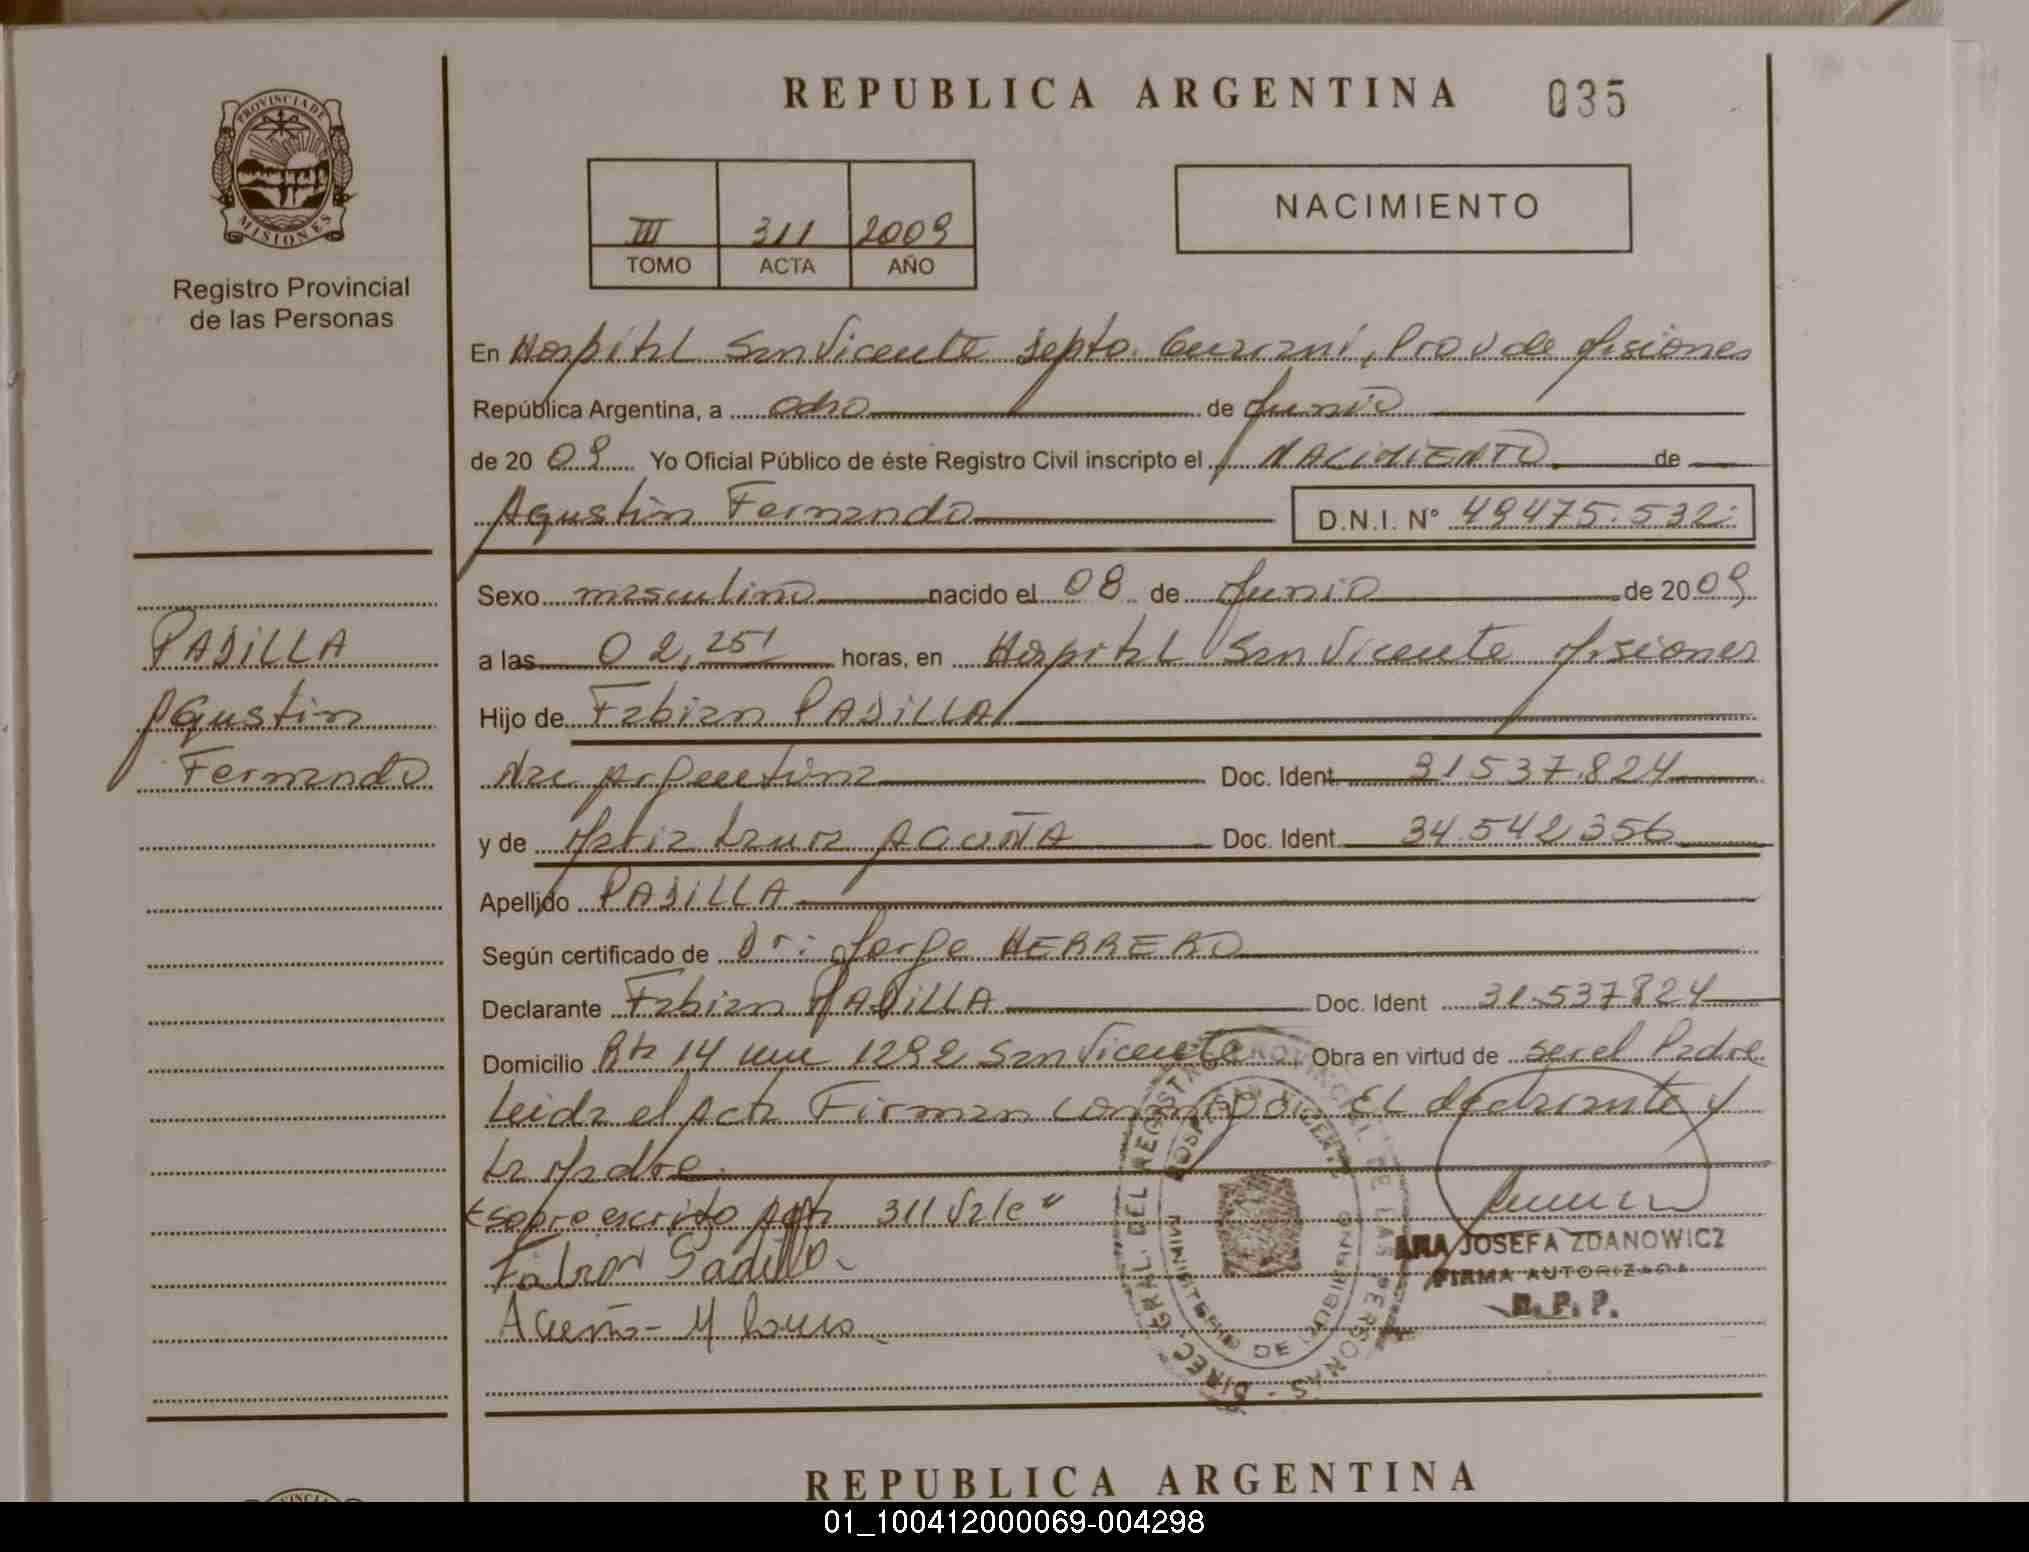 REPUBLICA ARGENTINA 035
PROVINCIA DE
MISIONES
Registro Provincial
de las Personas
III 311 2009
TOMO ACTA AÑO
NACIMIENTO
En Hospital San Vicente Depto. Guarani, Prov de Misiones
República Argentina, a ocho de Junio
de 20 09 Yo Oficial Público de éste Registro Civil inscripto el NACIMIENTO de
Agustin Fernando D.N.I. N° 49475.532
Sexo masculino nacido el 08 de Junio de 20 09
a las 02,25' horas, en Hospital San Vicente Misiones
Hijo de Fabian PADILLA
Nac Argentina Doc. Ident. 31537.824
y de Maria Laura ACUÑA Doc. Ident. 34.542356
Apellido PADILLA
Según certificado de Dr: Jorge HERRERO
Declarante Fabian PADILLA Doc. Ident 31.537824
Domicilio Rta 14 km 1292 San Vicente Obra en virtud de ser el Padre
Leida el Acta Firman conmigo El declarante y
La Madre.
sobre escrito Acta 311 Vale"
Fabian Padilla
Acuña - M Laura
PADILLA
Agustin
Fernando
DIREC. GRAL. DEL REGISTRO PROVINCIAL DE LAS PERSONAS -
HOSPITAL SAN VICENTE
MINISTERIO DE GOBIERNO
ANA JOSEFA ZDANOWICZ
FIRMA AUTORIZADA
R. P. P.
REPUBLICA ARGENTINA
01_100412000069-004298